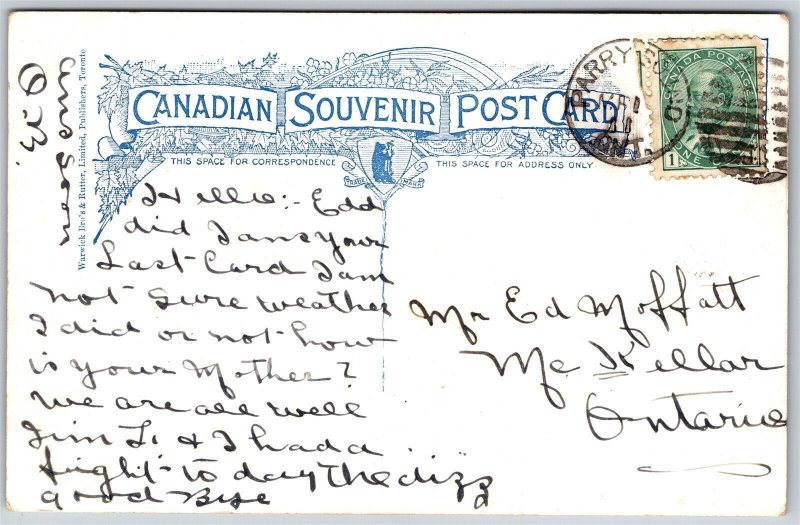 CANADIAN SOUVENIR POST CARD
THIS SPACE FOR CORRESPONDENCE
THIS SPACE FOR ADDRESS ONLY
TRADE MARK
Warwick Bro's & Rutter, Limited, Publishers, Toronto
PARRY
ONT.
CANADA POSTAGE
1 ONE
Hello:- Edd
did I ansyour
Last Card I am
not sure weather
I did or not how
is your Mother?
we are all well
Jim L. & I had a
fight to day the dizz
good Bye
answer soon
Mr Ed Moffatt
Mc Kellar
Ontario